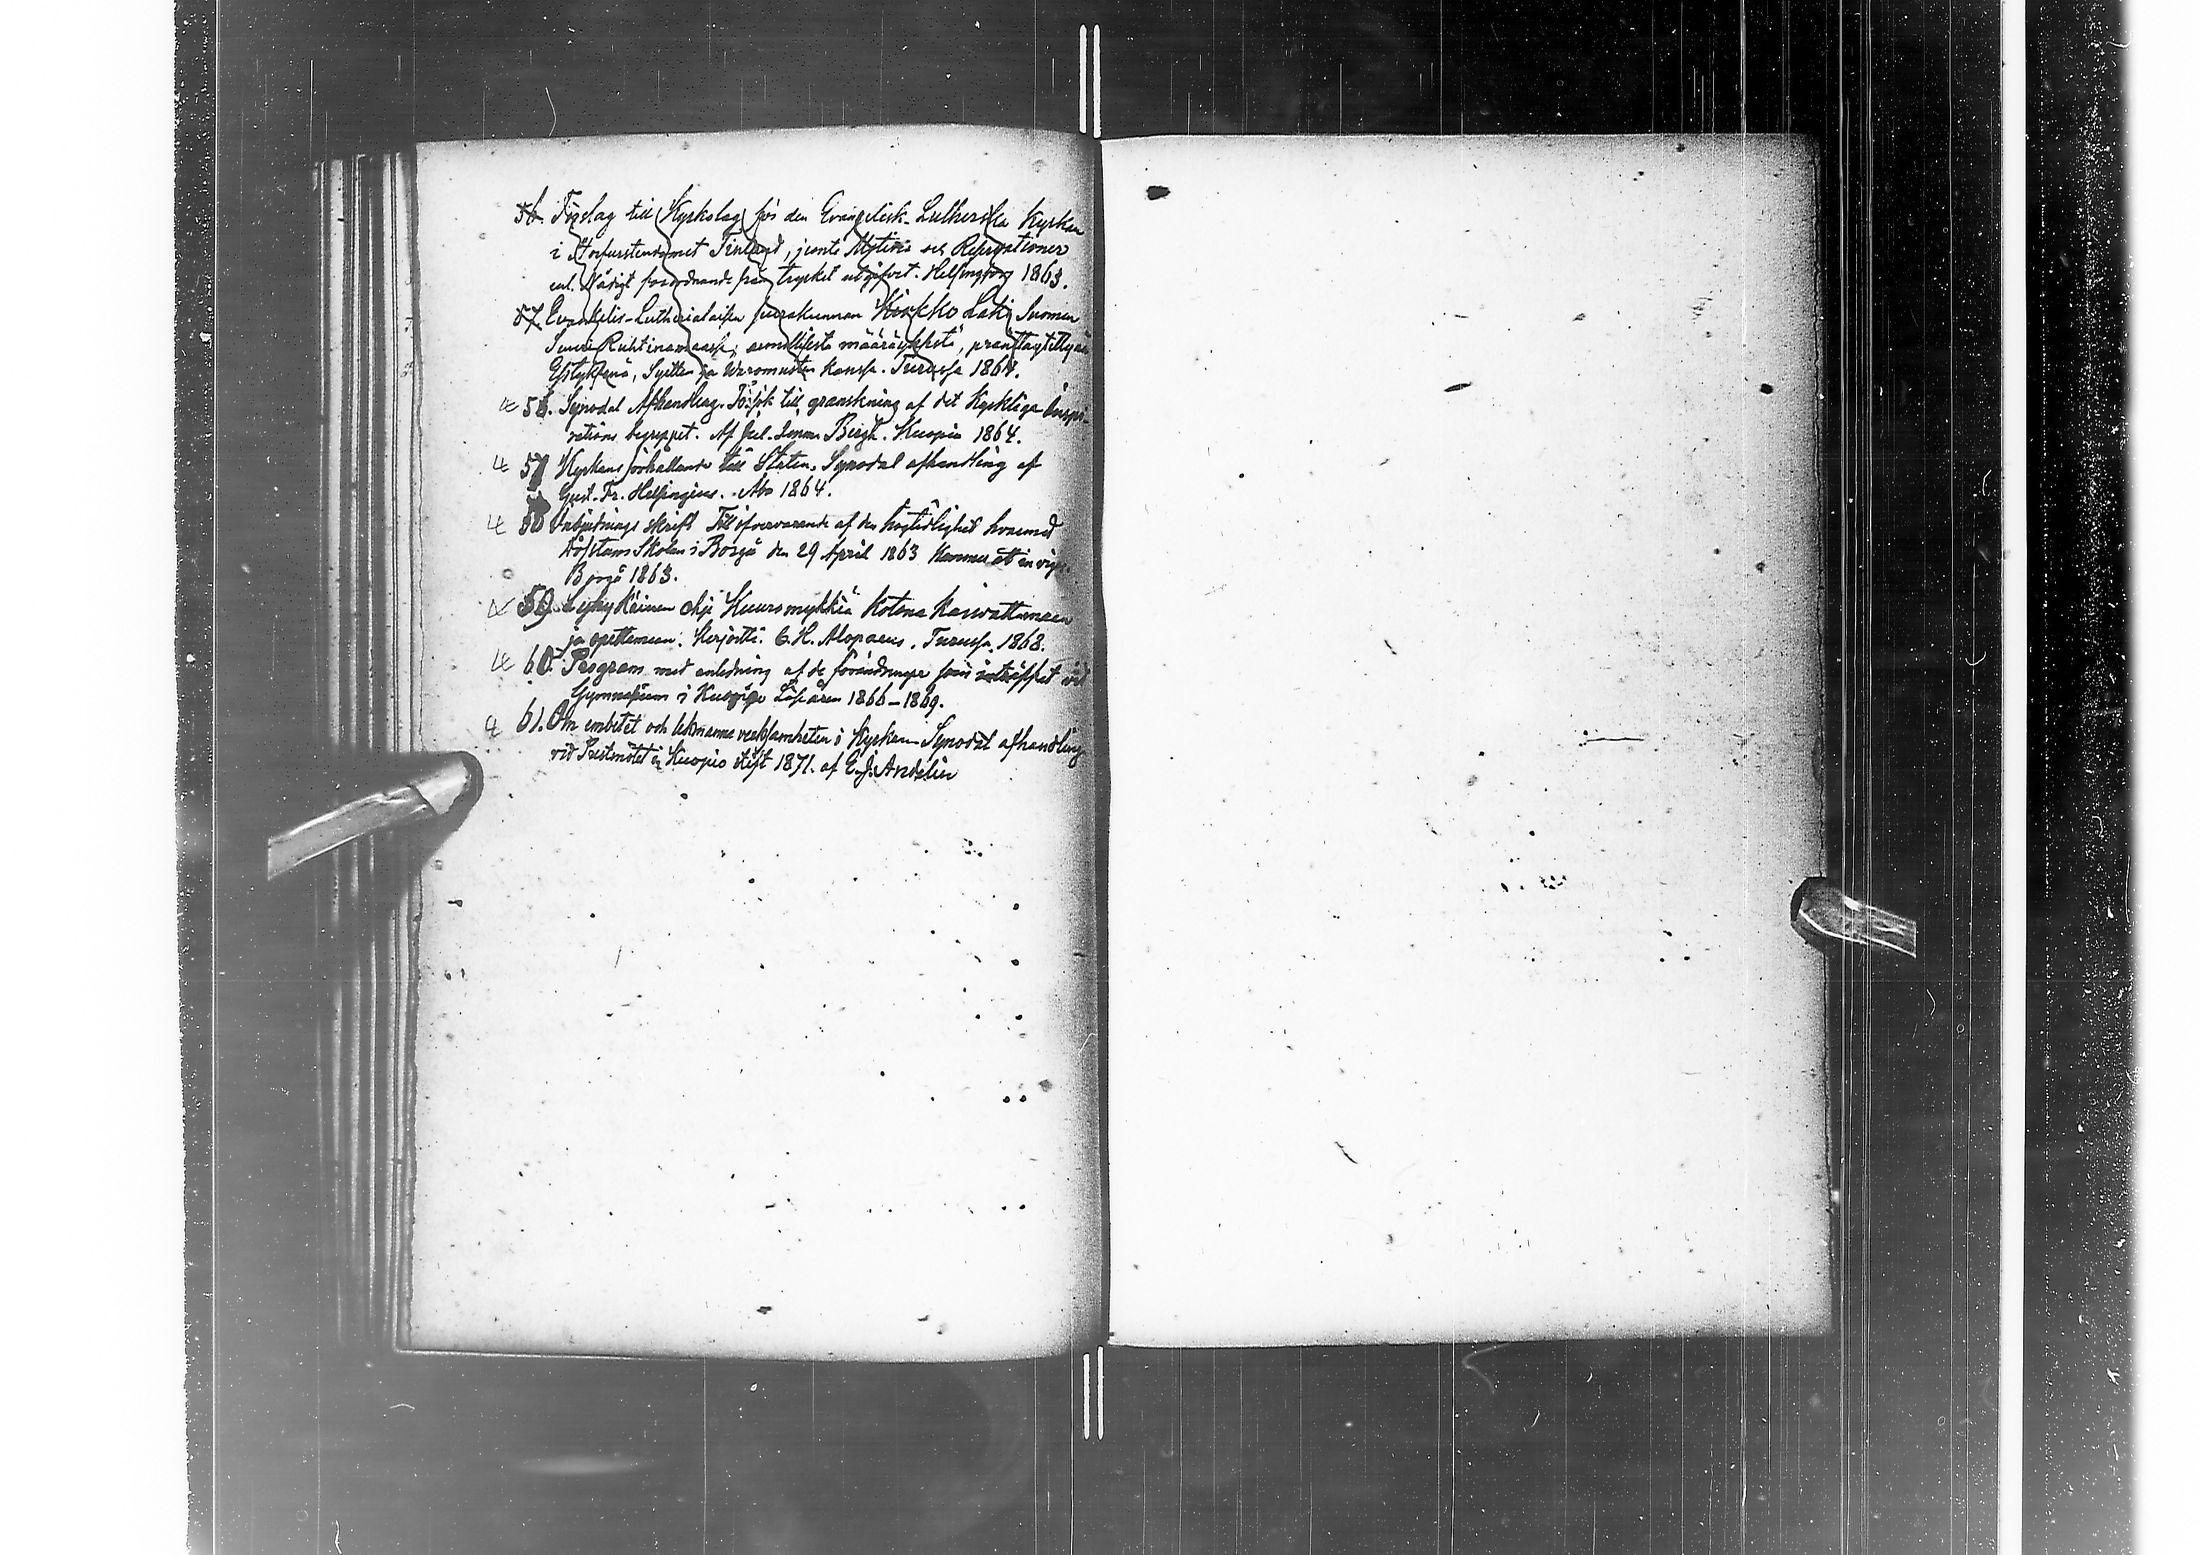 56. Förslag till Kyrkolag för den Evangelisk-Lutherska Kyrkan
i Storfurstendömet Finland, jemte Motiver och Reservationer
enl. Nådigt förordnande från trycket utgifvet. Helsingfors 1863.
57. Evankelis-Lutherialaisen seurakunnan Kirkko Laki Suomen
Suuri Ruhtinanmaassa, armollisesta määräyksestä, pränttäytettynä
Esityksenä, Syitten ja Waromusten kanssa. Turussa 1864.
58. Synodal Afhandling. Försök till granskning af det Kyrkliga Inspi-
rations begreppet. Af Jul. Imm. Bergh. Kuopio 1864.
57 Kyrkans förhållande till Staten. Synodal afhandling af
Gust. Fr. Helsingius. Åbo 1864.
58 Inbjudnings skrift Till öfvervarande af den högtidlighet hvarmed
Döfstum Skolan i Borgå den 29 April 1863 kommer att inviga.
Borgå 1863.
59. Lyhykäinen ohje Kuuromykkiä Kotona kaswattamaan
ja opettamaan. Kerjoitti. C. H. Alopaeus. Turussa 1868.
60. Program med anledning af de förändringar som inträffat vid
Gymnasium i Kuopio Läsåren 1866–1869.
61. Om embetet och lekmanna verksamheten i Kyrkan Synodal afhandling
vid Prestmötet i Kuopio stift 1871. af E. J. Andelin